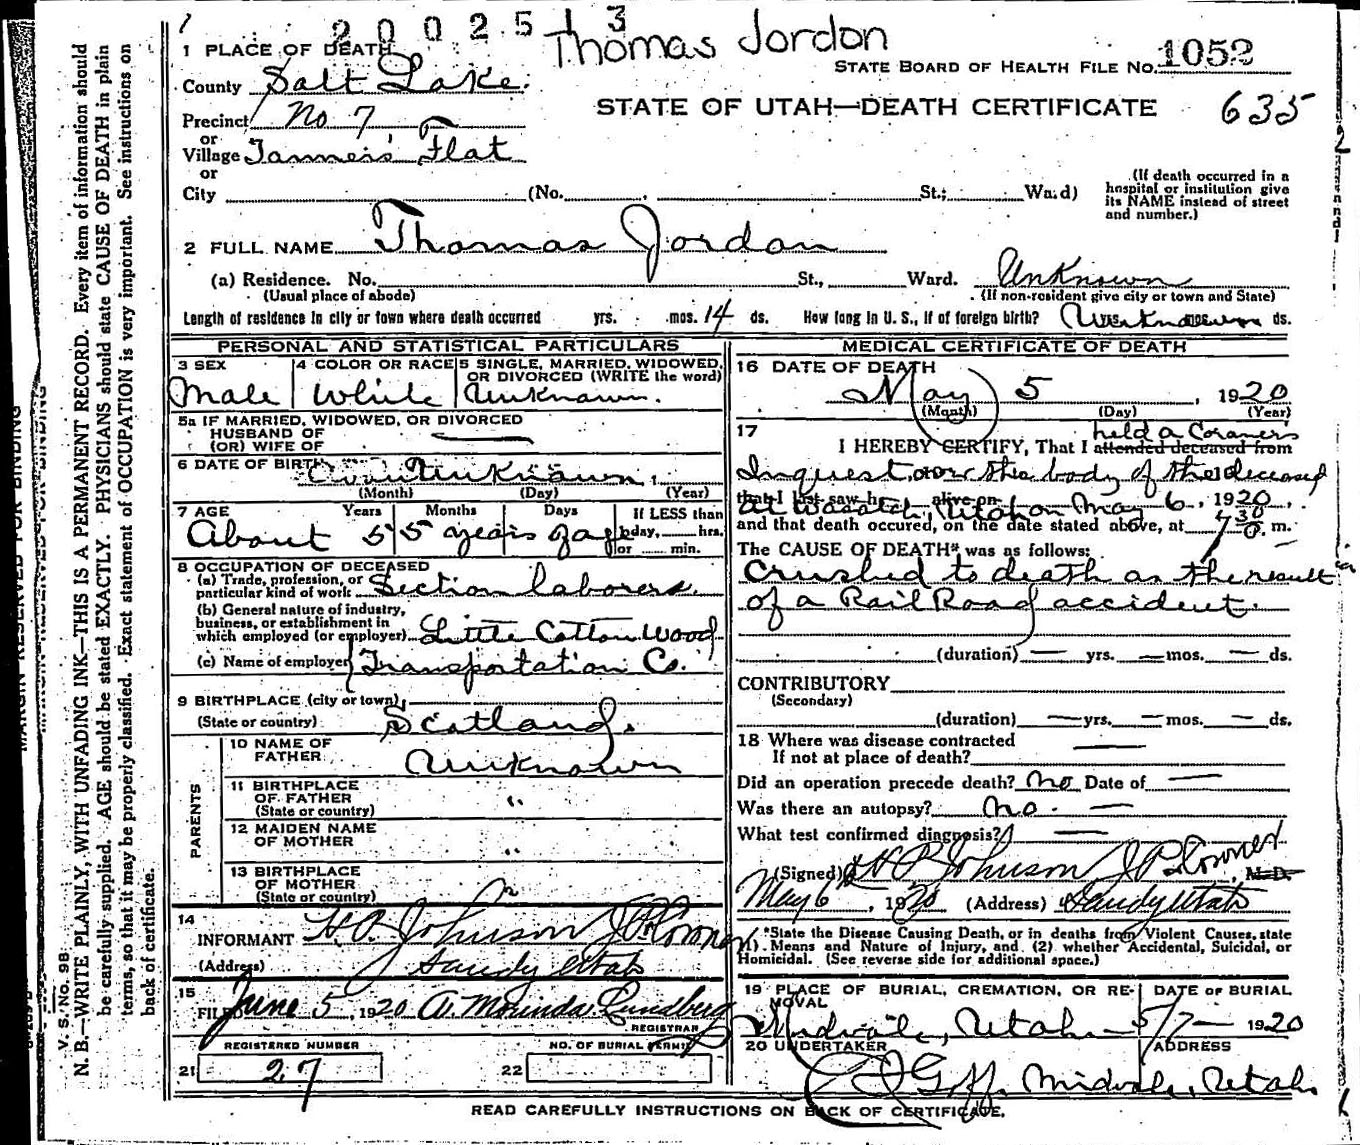 2 0 0 2 5 1 3
Thomas Jordon
1 PLACE OF DEATH
STATE BOARD OF HEALTH FILE No. 1052
County Salt Lake.
STATE OF UTAH—DEATH CERTIFICATE 635
Precinct No 7
or
Village Tanners Flat
or
City (No. St.; Ward)
(If death occurred in a
hospital or institution give
its NAME instead of street
and number.)
2 FULL NAME Thomas Jordan
(a) Residence. No. St., Ward. Unknown
(Usual place of abode) (If non-resident give city or town and State)
Length of residence in city or town where death occurred yrs. mos. 14 ds. How long in U. S., if of foreign birth? Unknown ds.
PERSONAL AND STATISTICAL PARTICULARS
3 SEX 4 COLOR OR RACE 5 SINGLE, MARRIED, WIDOWED,
OR DIVORCED (WRITE the word)
Male White Unknown.
5a IF MARRIED, WIDOWED, OR DIVORCED
HUSBAND OF
(OR) WIFE OF
6 DATE OF BIRTH Unknown
(Month) (Day) (Year)
7 AGE Years Months Days If LESS than
1 day, hrs.
or min.
About 55 years of age
8 OCCUPATION OF DECEASED
(a) Trade, profession, or
particular kind of work Section laborer.
(b) General nature of industry,
business, or establishment in
which employed (or employer) Little Cottonwood
(c) Name of employer Transportation Co.
9 BIRTHPLACE (city or town)
(State or country) Scotland.
PARENTS
10 NAME OF
FATHER Unknown
11 BIRTHPLACE
OF FATHER "
(State or country)
12 MAIDEN NAME
OF MOTHER "
13 BIRTHPLACE
OF MOTHER
(State or country) "
14
INFORMANT H.P. Johnson J P Coroner
(Address) Sandy Utah
15
FILED June 5, 1920 A. Mourinda Lundberg
REGISTRAR
REGISTERED NUMBER NO. OF BURIAL PERMIT
21 27 22
MEDICAL CERTIFICATE OF DEATH
16 DATE OF DEATH
May 5, 1920
(Month) (Day) (Year)
17 held a Coroners
I HEREBY CERTIFY, That I attended deceased from
Inquest over the body of the deceased
that I last saw h alive on
at Wasatch, Utah on May 6, 1920,
and that death occured, on the date stated above, at 7 30 P. m.
The CAUSE OF DEATH* was as follows:
Crushed to death as the result
of a Rail Road accident.
(duration) — yrs. — mos. — ds.
CONTRIBUTORY
(Secondary)
(duration) — yrs. — mos. — ds.
18 Where was disease contracted
If not at place of death?
Did an operation precede death? No Date of —
Was there an autopsy? No. —
What test confirmed diagnosis? —
(Signed) H P Johnson J P Coroner, M.D.
May 6, 1920 (Address) Sandy Utah
*State the Disease Causing Death, or in deaths from Violent Causes, state
(1) Means and Nature of Injury, and (2) whether Accidental, Suicidal, or
Homicidal. (See reverse side for additional space.)
19 PLACE OF BURIAL, CREMATION, OR RE-
MOVAL
DATE OF BURIAL
Midvale, Utah— 5/7— 1920
20 UNDERTAKER ADDRESS
Goff, Midvale, Utah.
READ CAREFULLY INSTRUCTIONS ON BACK OF CERTIFICATE.
MARGIN RESERVED FOR BINDING
V. S. No. 9B
N. B.—WRITE PLAINLY, WITH UNFADING INK—THIS IS A PERMANENT RECORD. Every item of information should
be carefully supplied. AGE should be stated EXACTLY. PHYSICIANS should state CAUSE OF DEATH in plain
terms, so that it may be properly classified. Exact statement of OCCUPATION is very important. See instructions on
back of certificate.